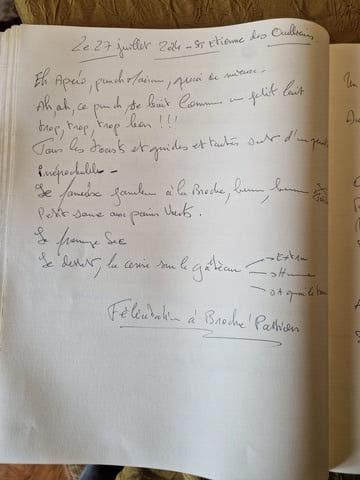 Le 27 juillet 2024 - St Etienne des Oullières
Eh Apéro, punch maison, quoi de mieux.
Ah, ah, ce punch, se boit comme un petit lait
trop, trop, trop bon !!!
Tous les toasts et et tartes sont d'un
irréprochable -
Le fameux jambon à la Broche, hum, hum
Petit sauce aux poivres Verts.
Le fromage Sec
Le dessert, la cerise sur le gâteau → Extra
→ Humm
→ A
Félicitation à Broche